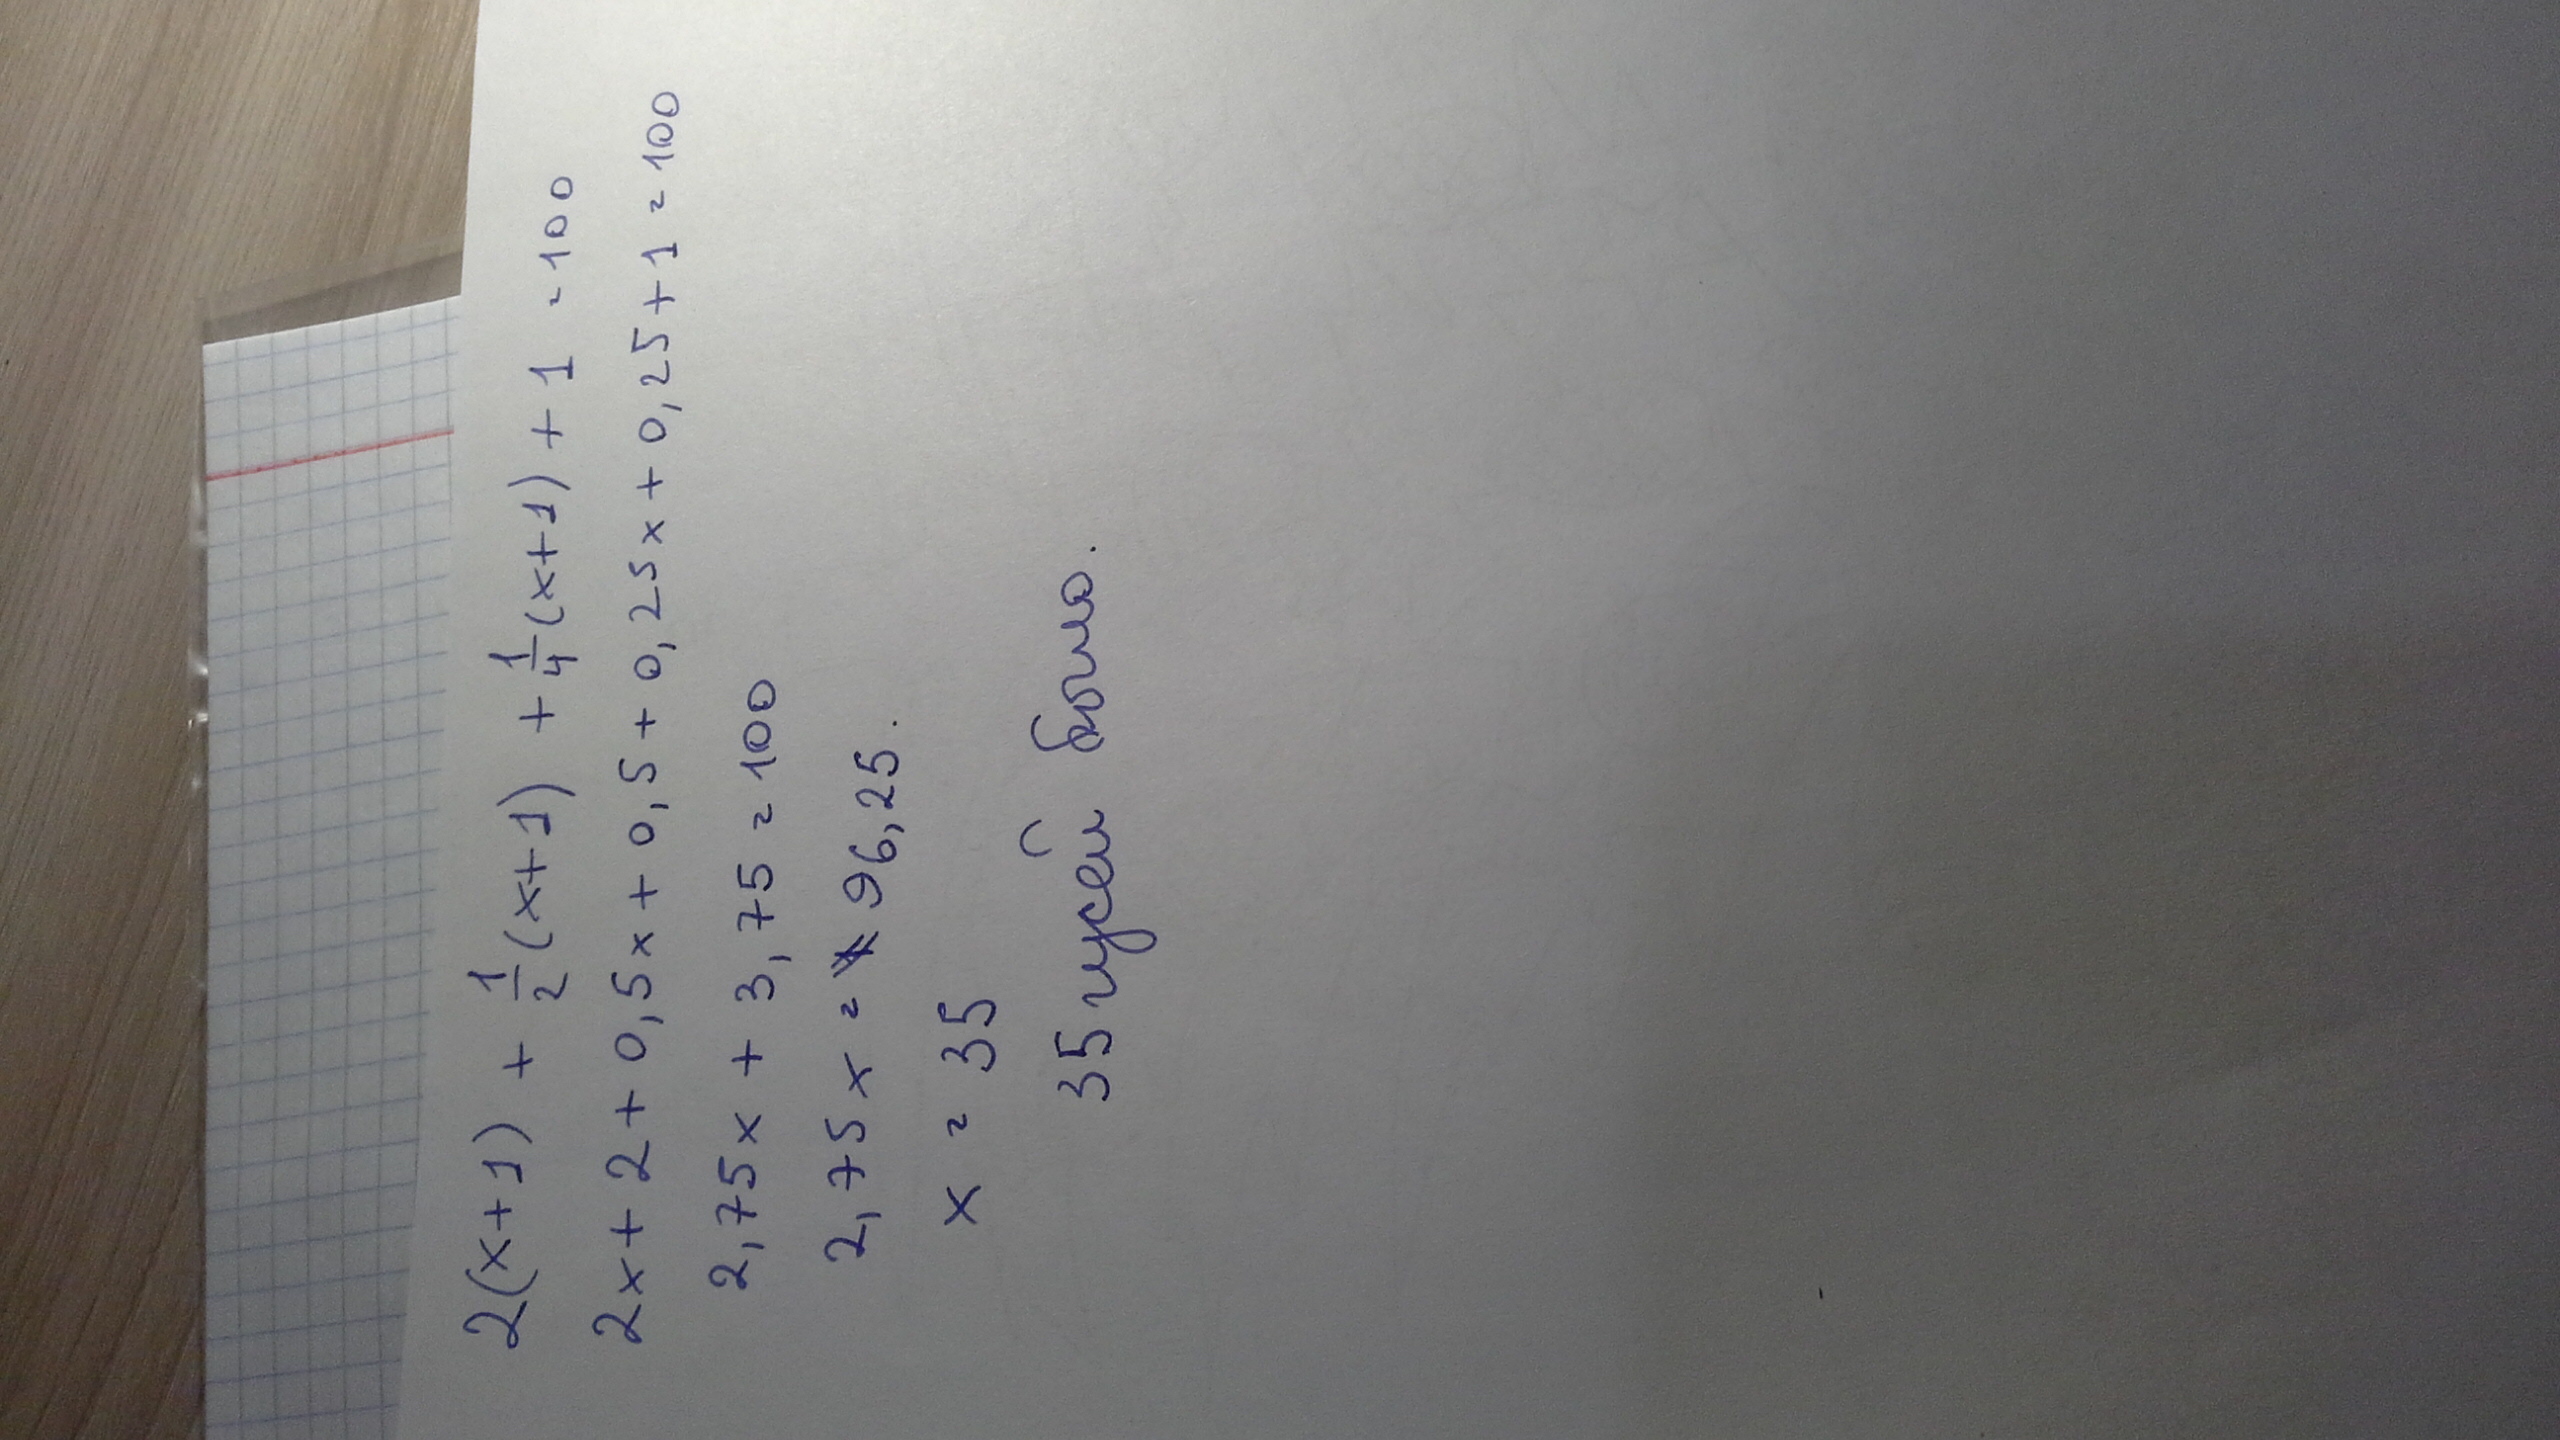 2(x+1) + 1/2(x+1) + 1/4(x+1) + 1 = 100
2x + 2 + 0,5x + 0,5 + 0,25x + 0,25 + 1 = 100
2,75x + 3,75 = 100
2,75x = 96,25.
x = 35
35 гусей было.